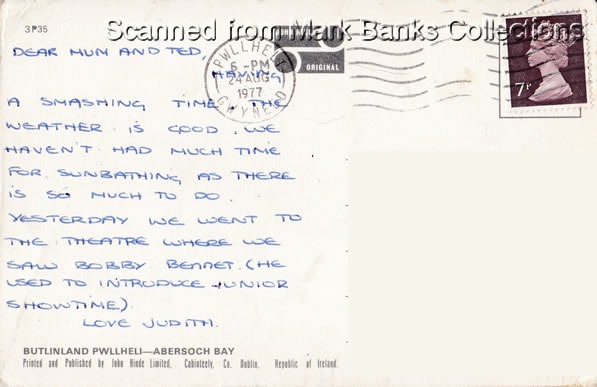 Scanned from Mark Banks Collections
3P35
DEAR MUM AND TED,
HAVING
A SMASHING TIME THE
WEATHER IS GOOD. WE
HAVEN'T HAD MUCH TIME
FOR SUNBATHING AS THERE
IS SO MUCH TO DO.
YESTERDAY WE WENT TO
THE THEATRE WHERE WE
SAW BOBBY BENNET. (HE
USED TO INTRODUCE JUNIOR
SHOWTIME).
LOVE JUDITH.
ORIGINAL
PWLLHELI
6 - PM
24 AUG
1977
GWYNEDD
7P
BUTLINLAND PWLLHELI—ABERSOCH BAY
Printed and Published by John Hinde Limited, Cabinteely, Co. Dublin, Republic of Ireland.